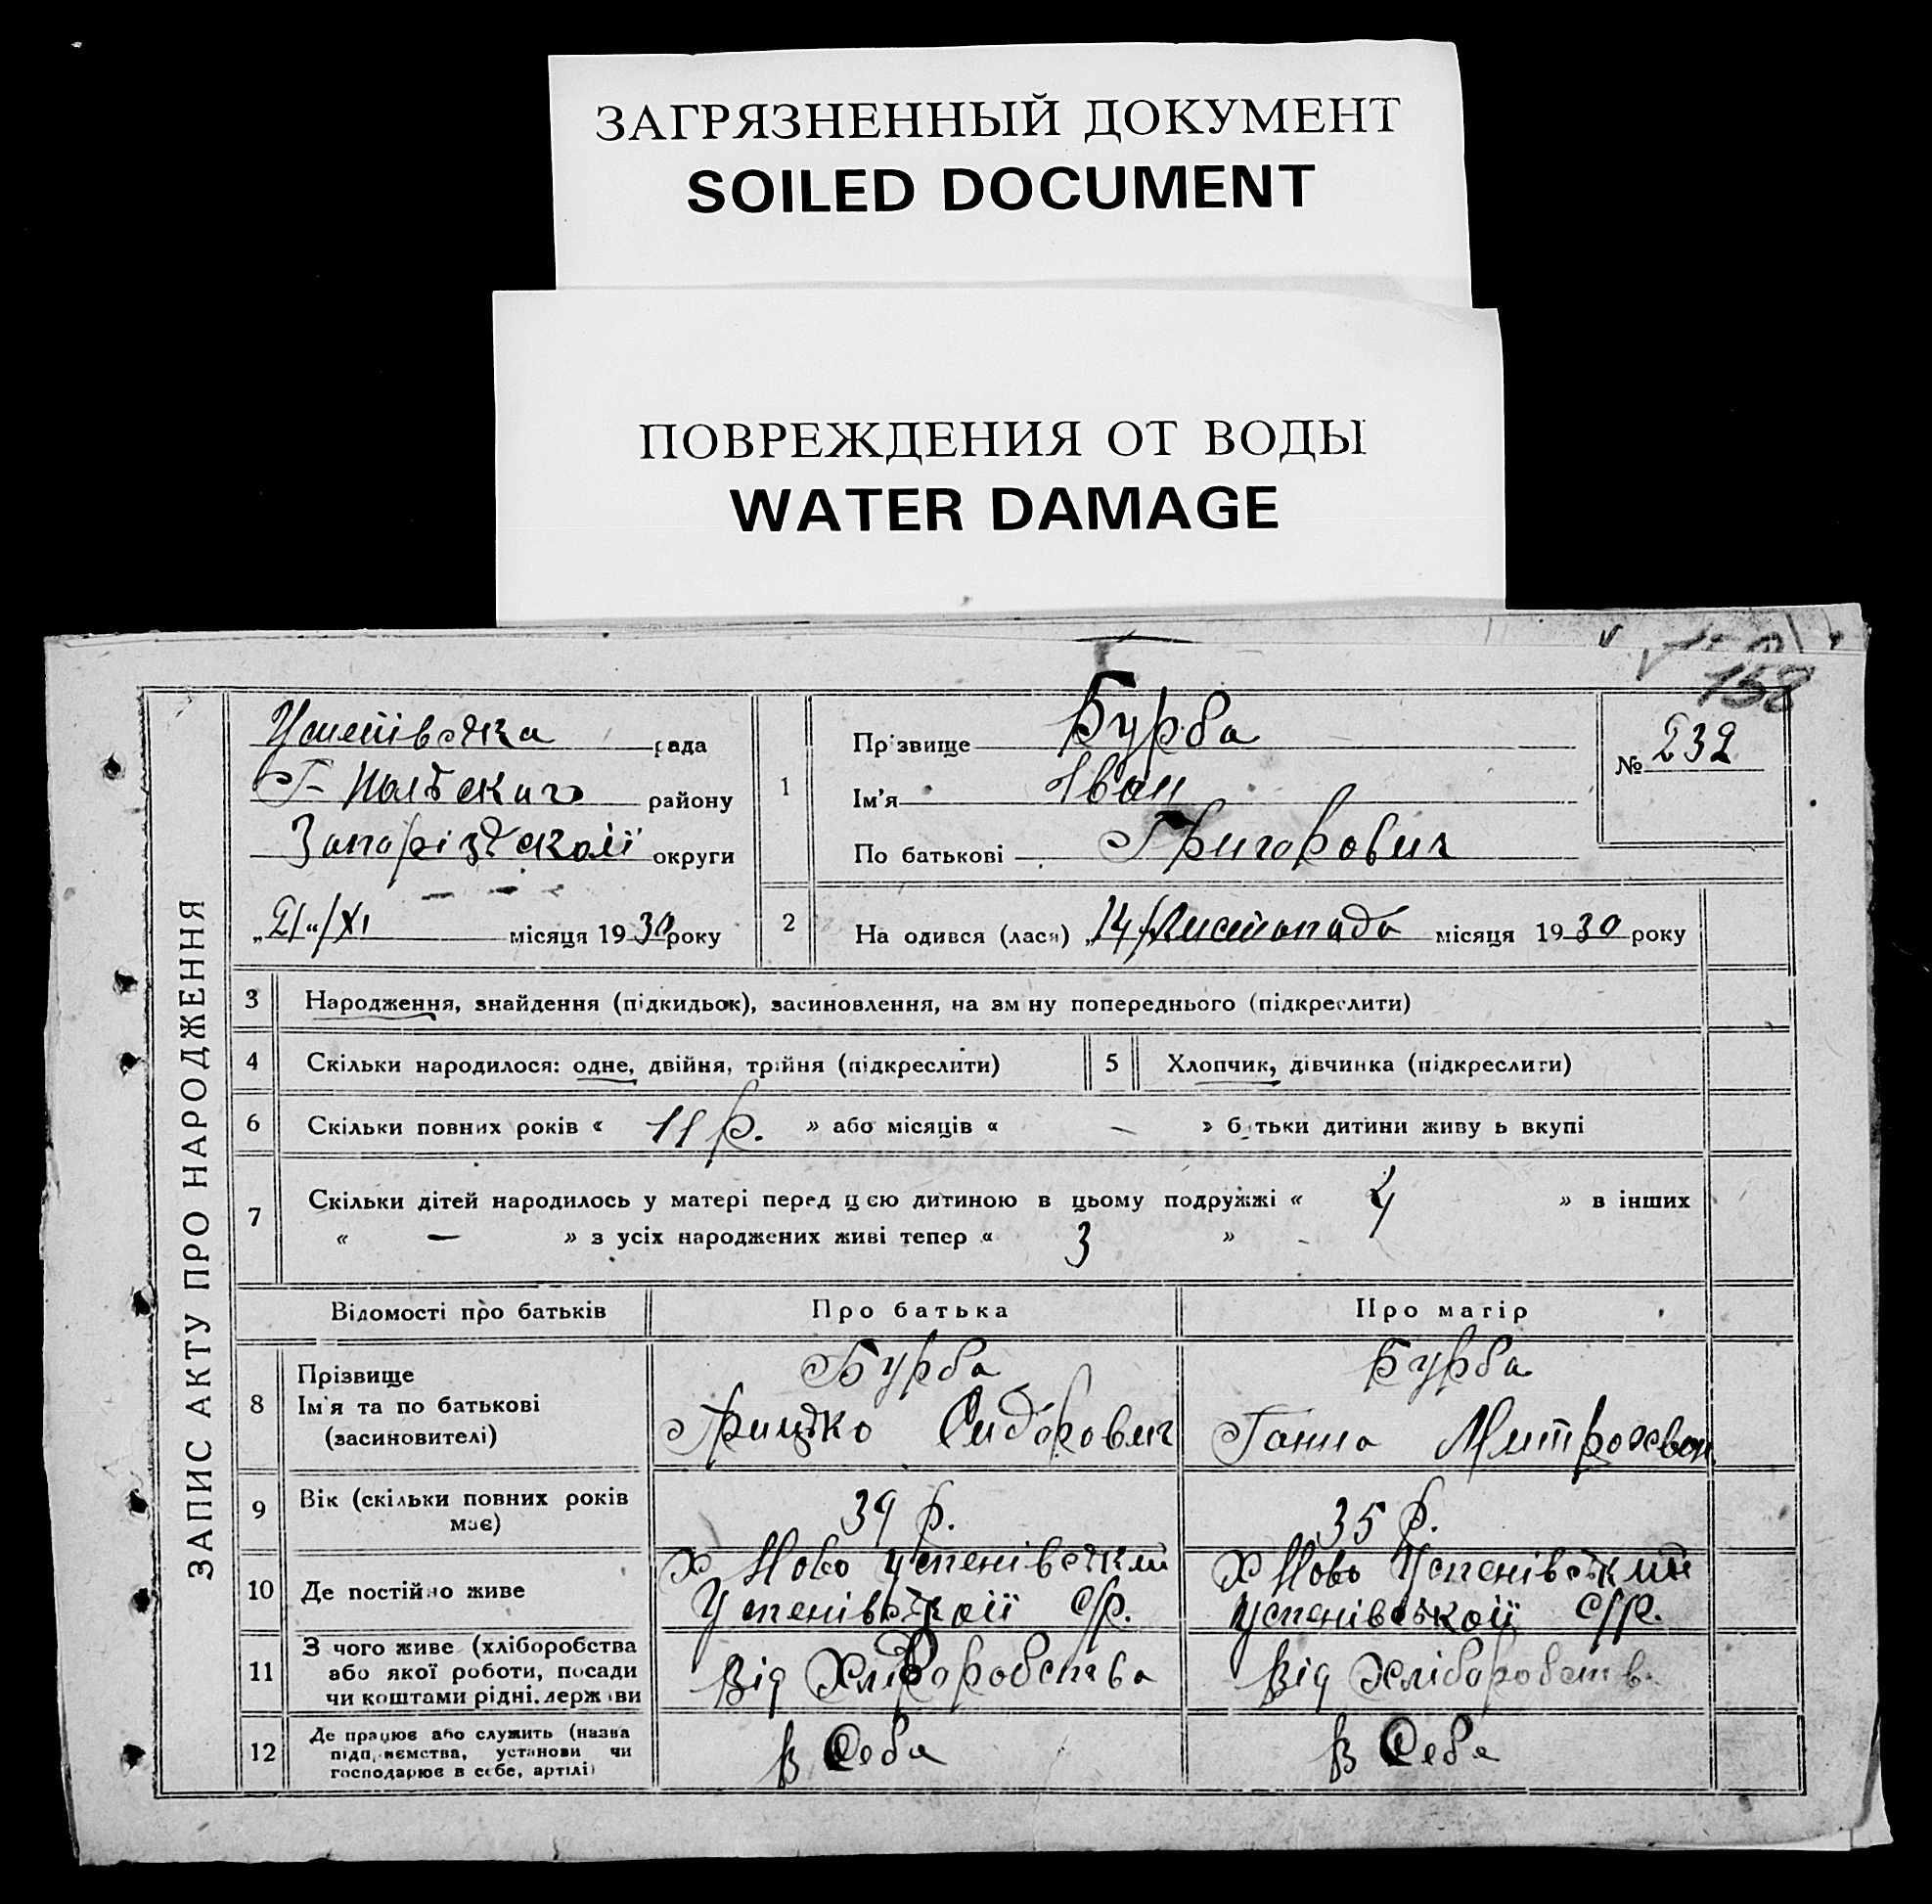 ЗАГРЯЗНЕННЫЙ ДОКУМЕНТ
SOILED DOCUMENT
ПОВРЕЖДЕНИЯ ОТ ВОДЫ
WATER DAMAGE
158
ЗАПИС АКТУ ПРО НАРОДЖЕННЯ
Успенівська рада
Г-Польского району
Запорізької округи
„21“/XI місяця 1930 року
1
Прізвище Бурба
Ім'я Іван
По батькові Григорович
№ 232
2
Народився (лася) „14/Листопада місяця 1930 року
3 Народження, знайдення (підкидьок), засиновлення, на зміну попереднього (підкреслити)
4 Скільки народилося: одне, двійня, трійня (підкреслити)
5 Хлопчик, дівчинка (підкреслити)
6 Скільки повних років « 11 р. » або місяців « — » батьки дитини живуть вкупі
7 Скільки дітей народилось у матері перед цією дитиною в цьому подружжі « 4 » в інших
« — » з усіх народжених живі тепер « 3 »
Відомості про батьків Про батька Про матір
8 Прізвище
Ім'я та по батькові
(засиновителі)
Бурба
Грицько Сидорович
Бурба
Ганна
9 Вік (скільки повних років
має)
39 р.
35 р.
10 Де постійно живе
Х Ново Успенівський
Успенівської с/р.
Х Ново Успенівський
Успенівської с/р.
11 З чого живе (хліборобства
або якої роботи, посади
чи коштами рідні, держави
Від Хліборобства
Від Хліборобств
12 Де працює або служить (назва
підприємства, установи чи
господарює в себе, артілі)
В Себе
В Себе